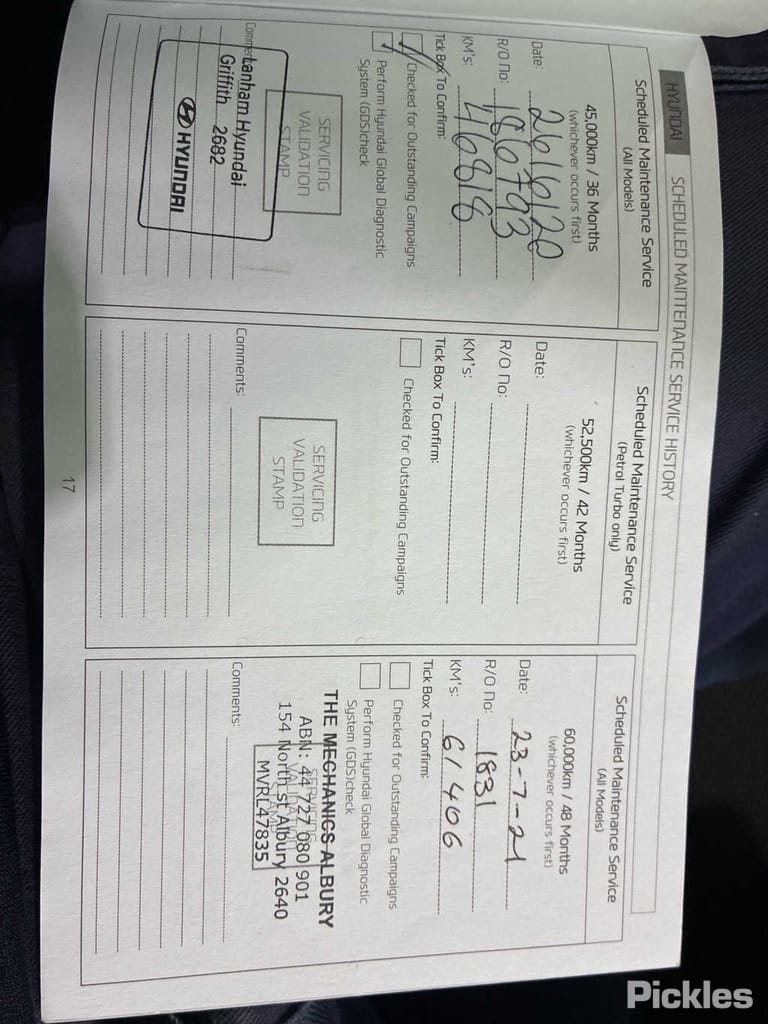 HYUNDAI SCHEDULED MAINTENANCE SERVICE HISTORY
Scheduled Maintenance Service
(All Models)
45,000km / 36 Months
(whichever occurs first)
Date: 26/6/20
R/O No: 186793
KM's: 46818
Tick Box To Confirm:
Checked for Outstanding Campaigns
Perform Hyundai Global Diagnostic
System (GDS)check
SERVICING
VALIDATION
STAMP
Lanham Hyundai
Griffith 2682
HYUNDAI
Scheduled Maintenance Service
(Petrol Turbo only)
52,500km / 42 Months
(whichever occurs first)
Date:
R/O No:
KM's:
Tick Box To Confirm:
Checked for Outstanding Campaigns
SERVICING
VALIDATION
STAMP
Comments:
Scheduled Maintenance Service
(All Models)
60,000km / 48 Months
(whichever occurs first)
Date: 23-7-21
R/O No: 1831
KM's: 61406
Tick Box To Confirm:
Checked for Outstanding Campaigns
Perform Hyundai Global Diagnostic
System (GDS)check
SERVICING
THE MECHANICS ALBURY
ABN: 44 727 080 901
154 North St Albury 2640
MVRL47835
Comments:
17
Pickles